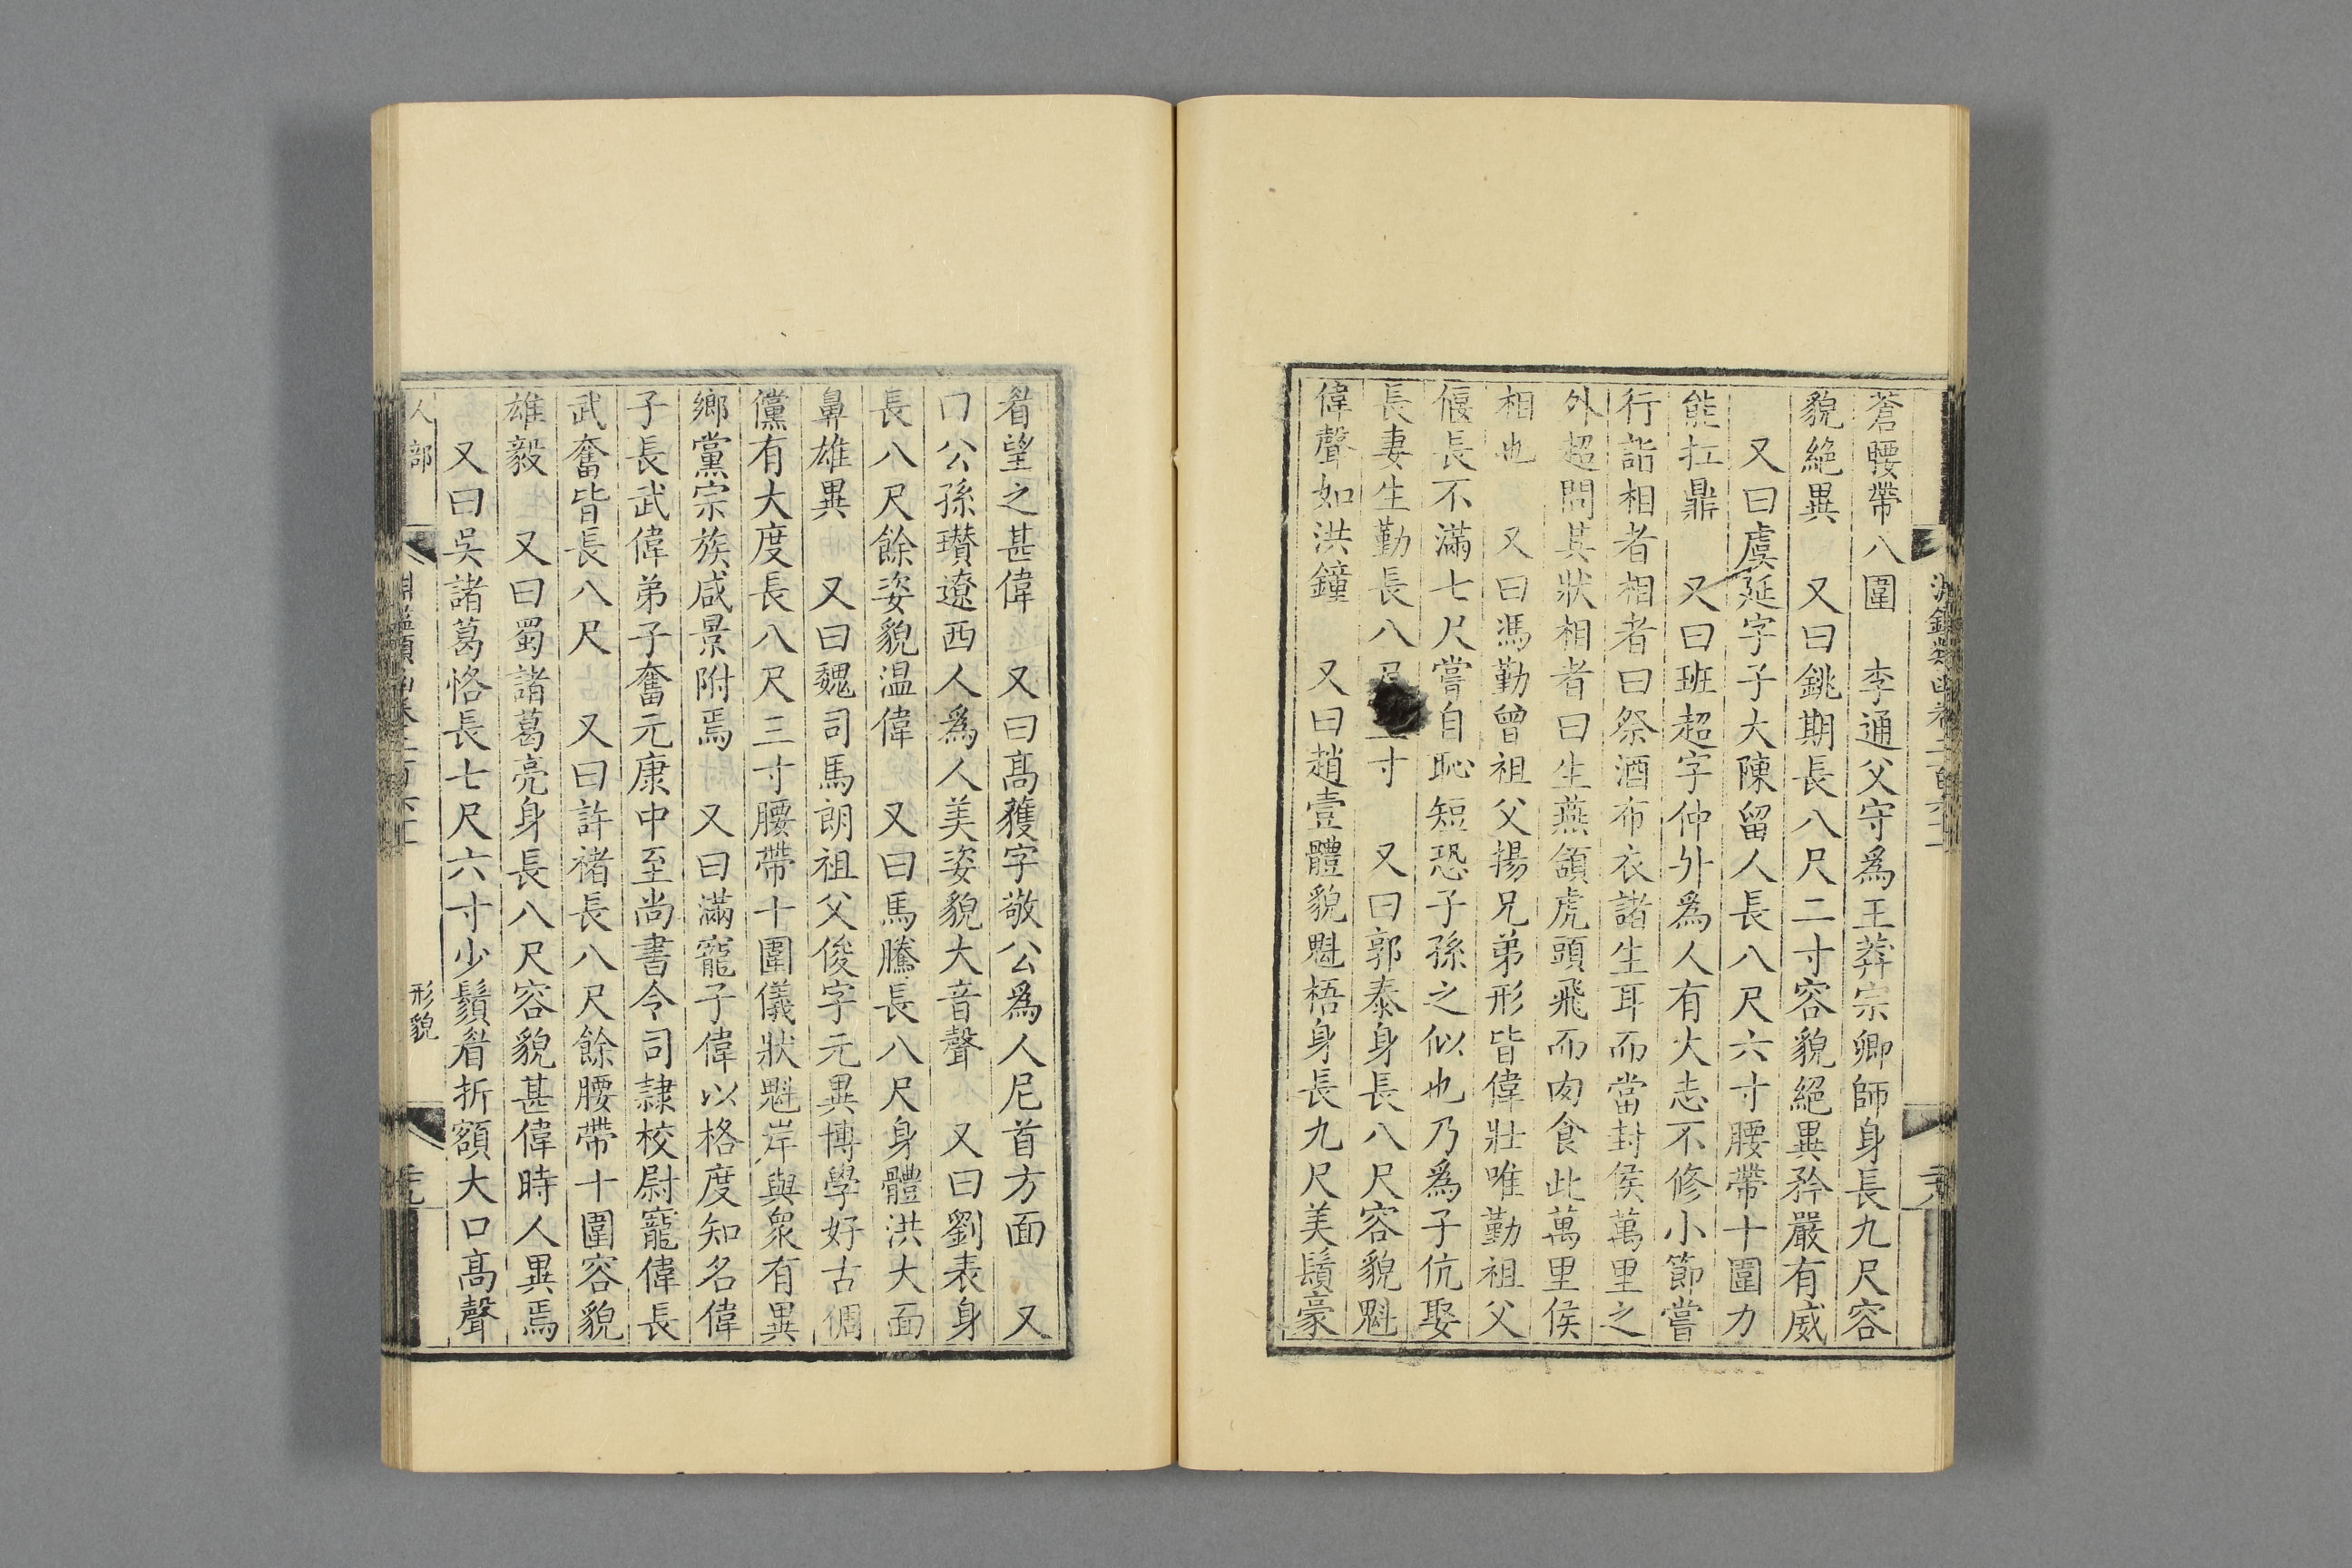 蒼腰帶八圍　李通父守爲王莽宗卿師身長九尺容
貌絕異　又曰銚期長八尺二寸容貌絕異矜嚴有威
又曰虞延字子大陳留人長八尺六寸腰帶十圍力
能扛鼎　又曰班超字仲升爲人有大志不修小節嘗
行詣相者相者曰祭酒布衣諸生耳而當封侯萬里之
外超問其狀相者曰生燕頷虎頭飛而肉食此萬里侯
相也　又曰馮勤曾祖父揚兄弟形皆偉壯唯勤祖父
偃長不滿七尺嘗自恥短恐子孫之似也乃爲子伉娶
長妻生勤長八尺寸　又曰郭泰身長八尺容貌魁
偉聲如洪鐘　又曰趙壹體貌魁梧身長九尺美鬚豪
眉望之甚偉　又曰高獲字敬公爲人尼首方面　又
曰公孫瓚遼西人爲人美姿貌大音聲　又曰劉表身
長八尺餘姿貌温偉　又曰馬騰長八尺身體洪大面
鼻雄異　又曰魏司馬朗祖父俊字元異博學好古倜
儻有大度長八尺三寸腰帶十圍儀狀魁岸與衆有異
鄉黨宗族咸景附焉　又曰滿寵子偉以格度知名偉
子長武偉弟子奮元康中至尚書令司隸校尉寵偉長
武奮皆長八尺　又曰許褚長八尺餘腰帶十圍容貌
雄毅　又曰蜀諸葛亮身長八尺容貌甚偉時人異焉
又曰吳諸葛恪長七尺六寸少鬚眉折額大口高聲
人部
形貌